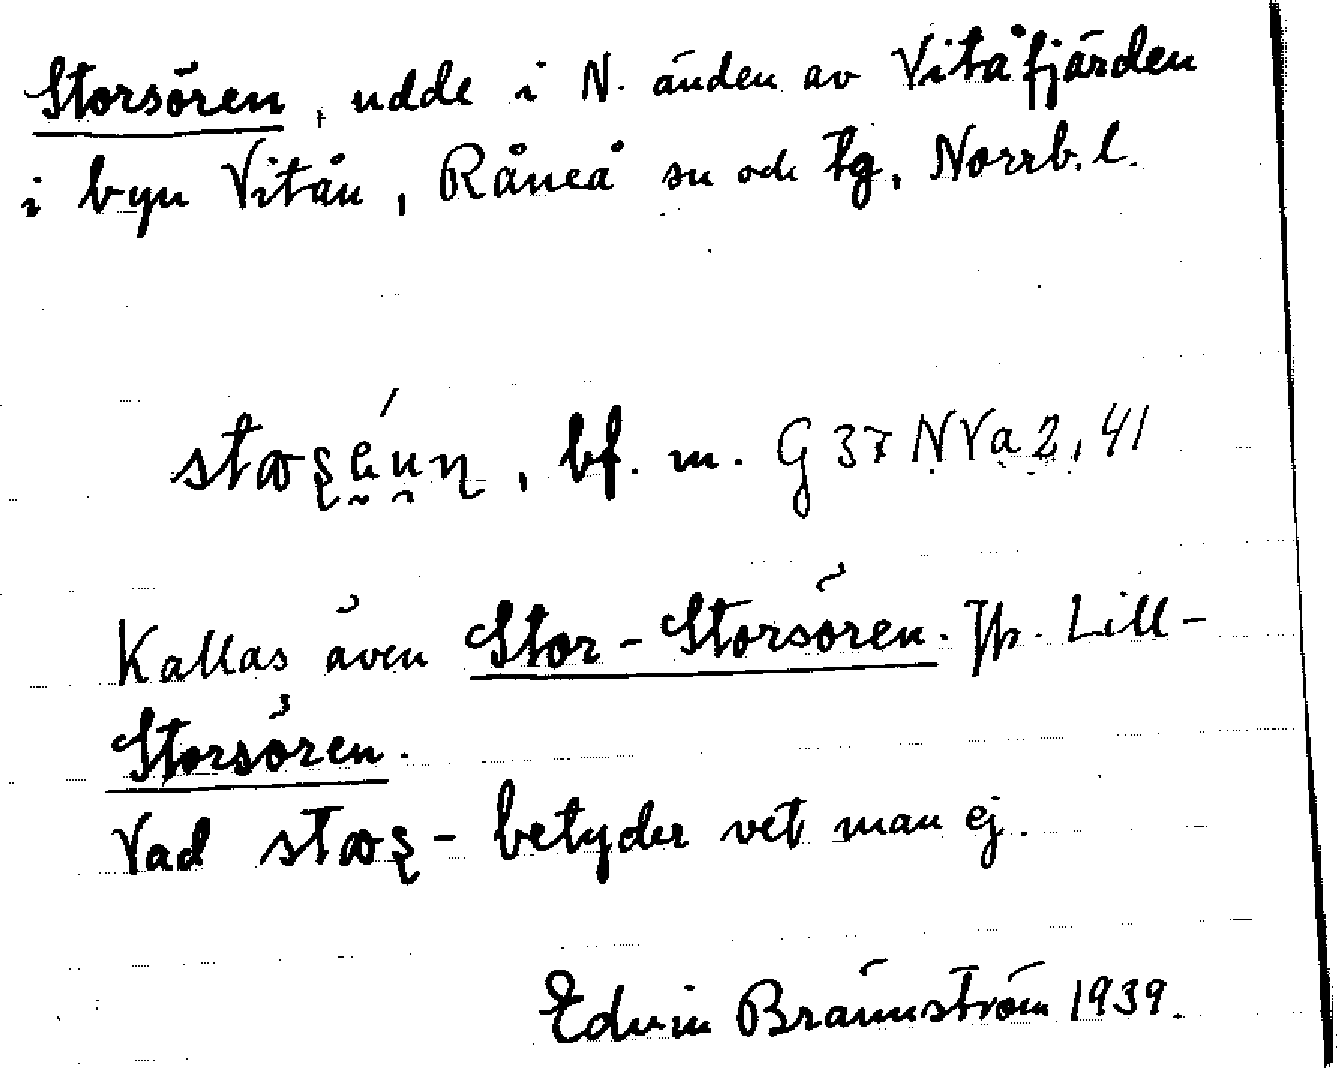 Storsören, udde i N. änden av Vitåfjärden
i byn Vitån, Råneå sn och tg, Norrb. l.
bf. m. G 37 N Va 2, 41
Kallas även Stor-Storsören. Jfr. Lill-
Storsören.
Vad betyder vet man ej.
Edvin Brännström 1939.